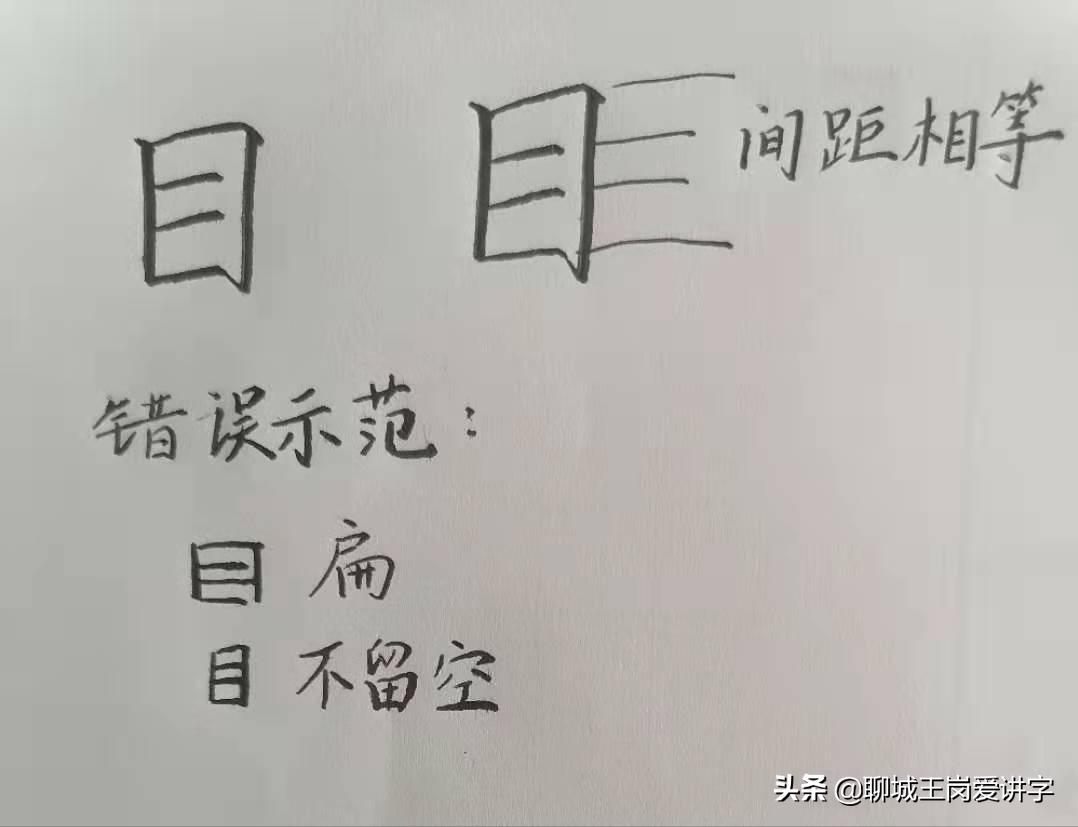 目 目 间距相等
错误示范：
目 扁
目 不留空
头条 @聊城王岗爱讲字